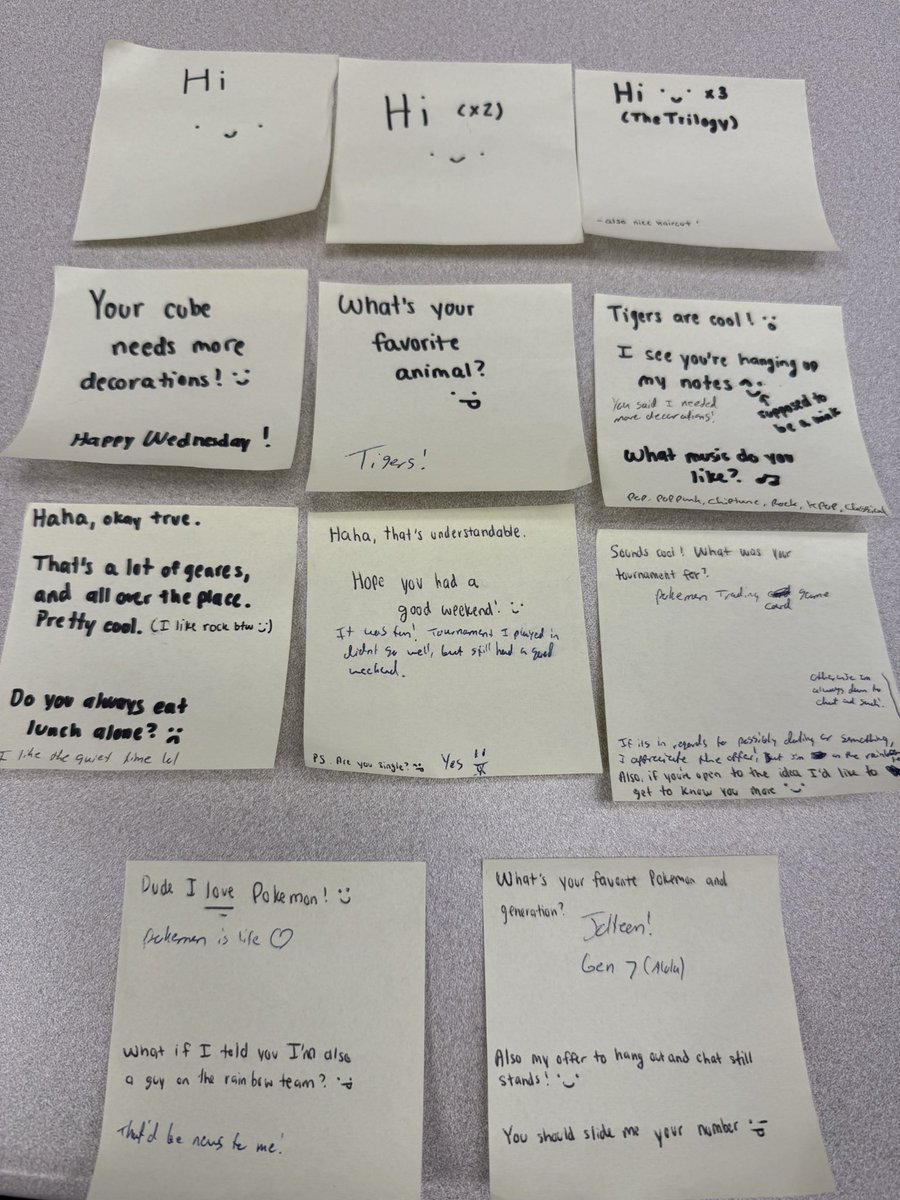 Hi
Hi (x2)
Hi x3
(The Trilogy)
- also nice haircut!
Your cube
needs more
decorations! :)
Happy Wednesday!
What's your
favorite
animal?
:P
Tigers!
Tigers are cool! :)
I see you're hanging up
my notes
supposed to
be a wink
You said I needed
more decorations!
What music do you
like? ♫
Pop, Pop punk, chiptune, Rock, KPOP, Classical
Haha, okay true.
That's a lot of genres,
and all over the place.
Pretty cool. (I like rock btw :))
Do you always eat
lunch alone? :(
I like the quiet time lol
Haha, that's understandable.
Hope you had a
good weekend! :)
It was fun! Tournament I played in
didnt go well, but still had a good
weekend.
PS. Are you single?
Yes
Sounds cool! What was your
tournament for?
Pokemon Trading game
card
Otherwise Im
always down to
chat and such!
If its in regards to possibly dating or something,
I appreciate the offer! But im on the rainbow
Also, if you're open to the idea I'd like to
get to know you more :)
Dude I love Pokemon! :)
Pokemon is life ♡
What if I told you I'm also
a guy on the rainbow team? :P
That'd be news to me!
What's your favorite Pokemon and
generation?
Gen 7 (Alola)
Also my offer to hang out and chat still
stands! :)
You should slide me your number :P